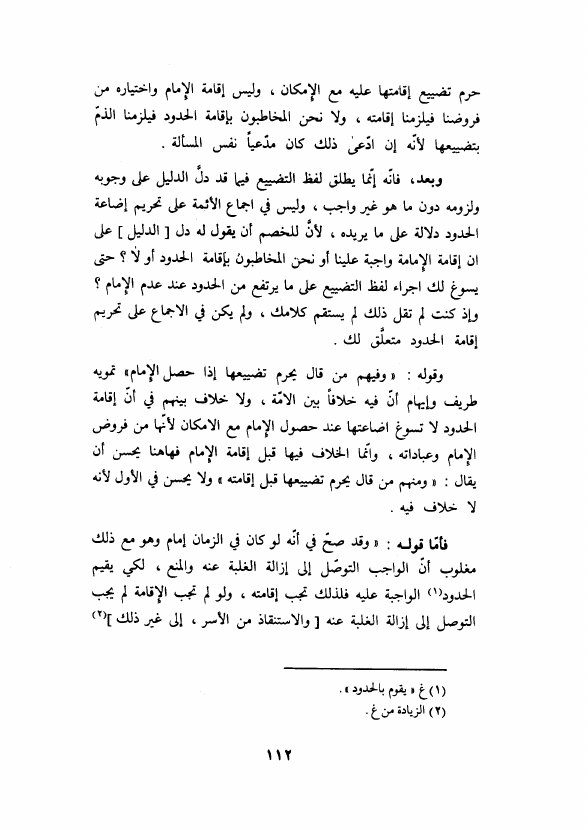 حرم تضييع إقامتها عليه مع الإمكان ، وليس إقامة الإمام واختياره من
فروضنا فيلزمنا إقامته ، ولا نحن المخاطبون بإقامة الحدود فيلزمنا الذمّ
بتضييعها لأنّه إن ادّعىٰ ذلك كان مدّعياً نفس المسألة .
وبعد، فانّه إنّما يطلق لفظ التضييع فيما قد دلَّ الدليل على وجوبه
ولزومه دون ما هو غير واجب ، وليس في اجماع الأئمة على تحريم إضاعة
الحدود دلالة على ما يريده ، لأنَّ للخصم أن يقول له دل [ الدليل ] على
ان إقامة الإمامة واجبة علينا أو نحن المخاطبون بإقامة الحدود أو لا ؟ حتى
يسوغ لك اجراء لفظ التضييع على ما يرتفع من الحدود عند عدم الإمام ؟
وإذ كنت لم تقل ذلك لم يستقم كلامك ، ولم يكن في الاجماع على تحريم
إقامة الحدود متعلَّق لك .
وقوله : « وفيهم من قال يحرم تضييعها إذا حصل الإمام» تمويه
طريف وإيهام أنّ فيه خلافاً بين الامّة ، ولا خلاف بينهم في أنّ إقامة
الحدود لا تسوغ اضاعتها عند حصول الإمام مع الامكان لأنّها من فروض
الإمام وعباداته ، وانّما الخلاف فيها قبل إقامة الإمام فهاهنا يحسن أن
يقال : « ومنهم من قال يحرم تضييعها قبل إقامته » ولا يحسن في الأول لأنه
لا خلاف فيه .
فأمّا قولـه : « وقد صحّ في أنّه لو كان في الزمان إمام وهو مع ذلك
مغلوب أنّ الواجب التوصّل إلى إزالة الغلبة عنه والمنع ، لكي يقيم
الحدود(١) الواجبة عليه فلذلك تجب إقامته ، ولو لم تجب الإقامة لم يجب
التوصل إلى إزالة الغلبة عنه [ والاستنقاذ من الأسر ، إلى غير ذلك ](٢)
(١) غ « يقوم بالحدود » .
(٢) الزيادة من غ .
١١٢